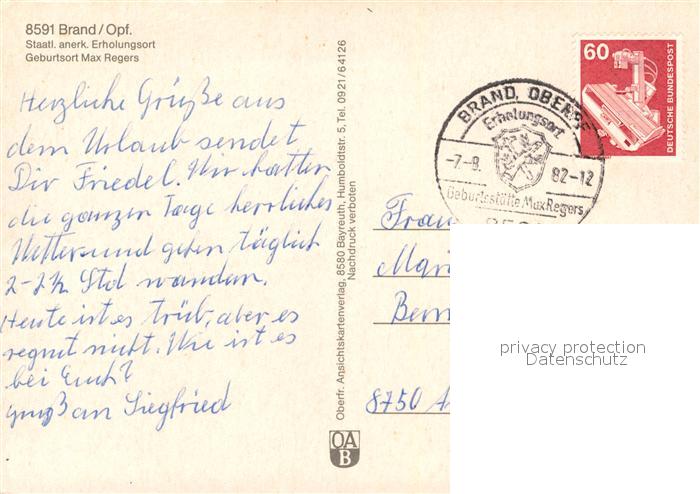 8591 Brand/Opf.
Staatl. anerk. Erholungsort
Geburtsort Max Regers
Herzliche Grüße aus
dem Urlaub sendet
Dir Friedel. Wir hatten
die ganzen Tage herrliches
Wetter und gehen täglich
2-2½ Std wandern.
Heute ist es trüb, aber es
regnet nicht. Wie ist es
bei Euch?
Gruß an Siegfried
Oberfr. Ansichtskartenverlag, 8580 Bayreuth, Humboldtstr. 5, Tel. 0921/64126
Nachdruck verboten
OA
B
BRAND, OBERPF
Erholungsort
-7.-8. 82-12
Geburtsstätte Max Regers
60
DEUTSCHE BUNDESPOST
Frau
Mari
Bern
8750 A
privacy protection
Datenschutz